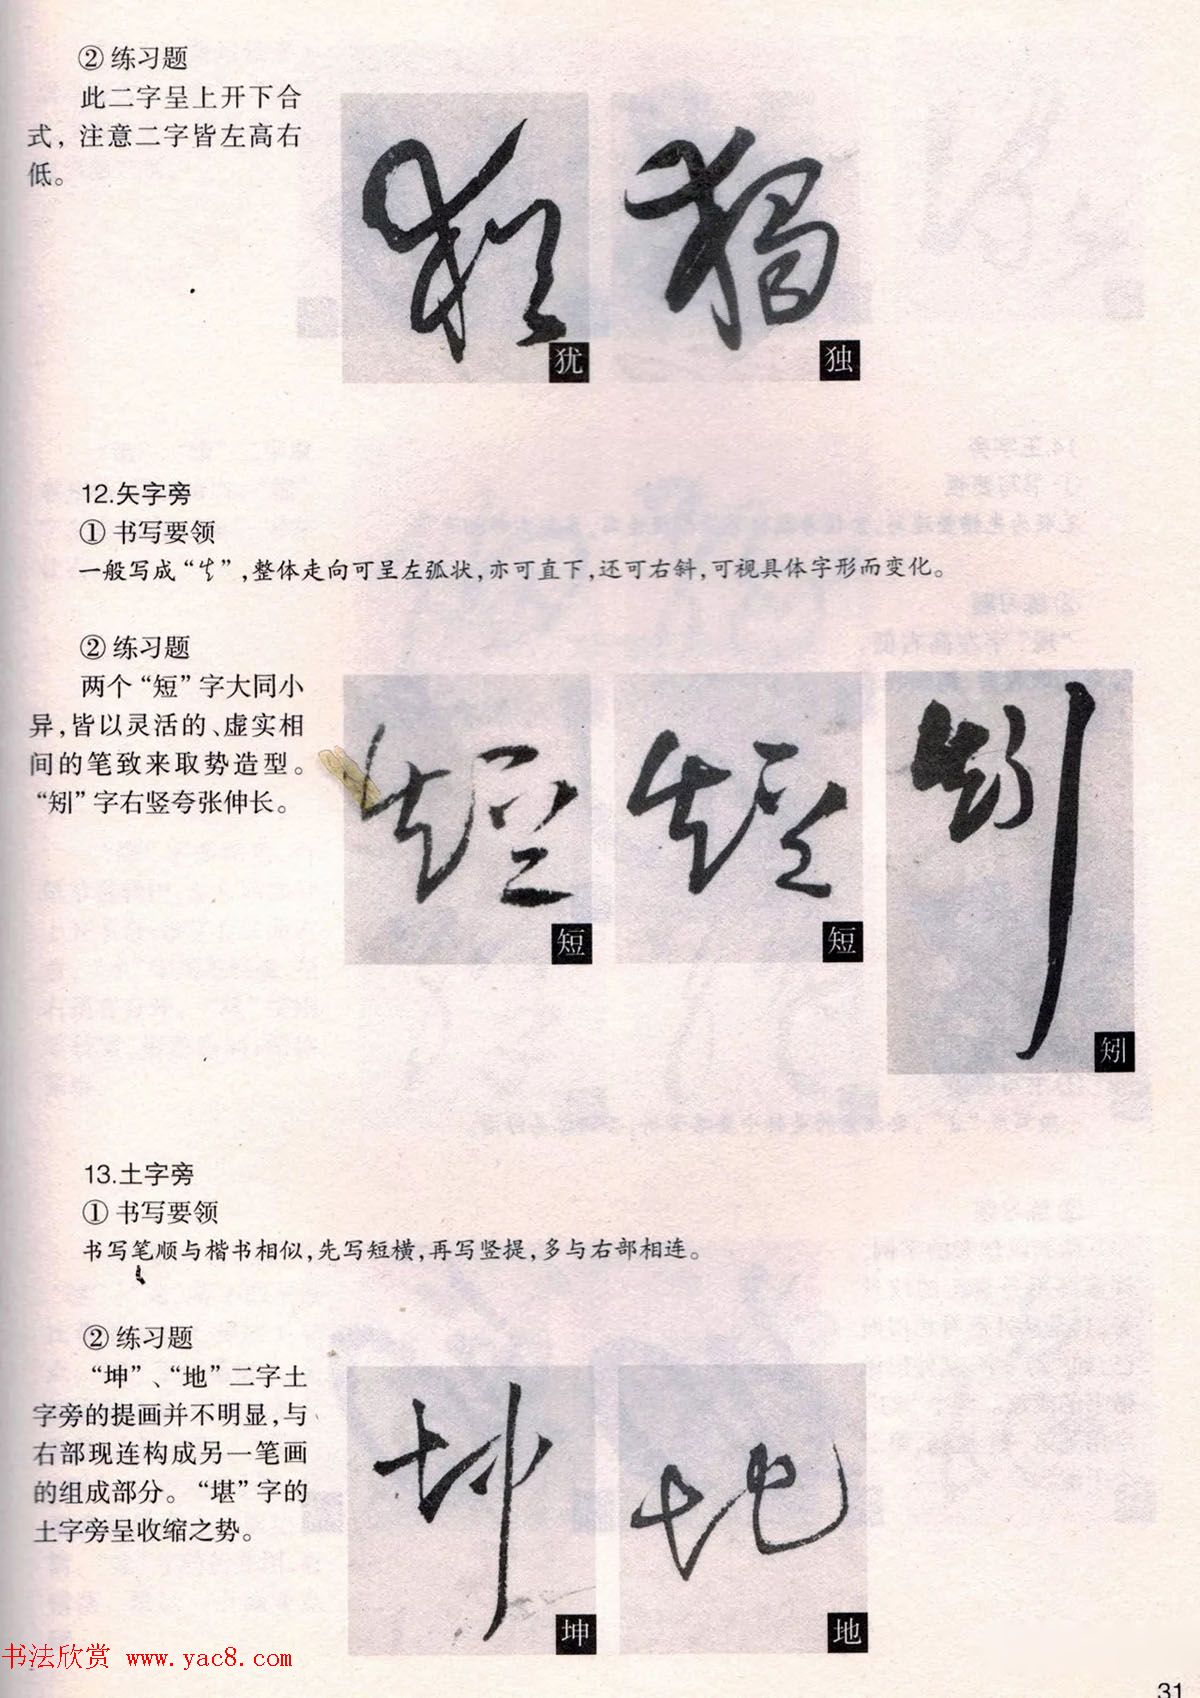 ② 练习题
此二字呈上开下合
式，注意二字皆左高右
低。
犹
独
12.矢字旁
① 书写要领
一般写成“”，整体走向可呈左弧状，亦可直下，还可右斜，可视具体字形而变化。
② 练习题
两个“短”字大同小
异，皆以灵活的、虚实相
间的笔致来取势造型。
“矧”字右竖夸张伸长。
短
短
矧
13.土字旁
① 书写要领
书写笔顺与楷书相似，先写短横，再写竖提，多与右部相连。
② 练习题
“坤”、“地”二字土
字旁的提画并不明显，与
右部现连构成另一笔画
的组成部分。“堪”字的
土字旁呈收缩之势。
坤
地
书法欣赏 www.yac8.com
31